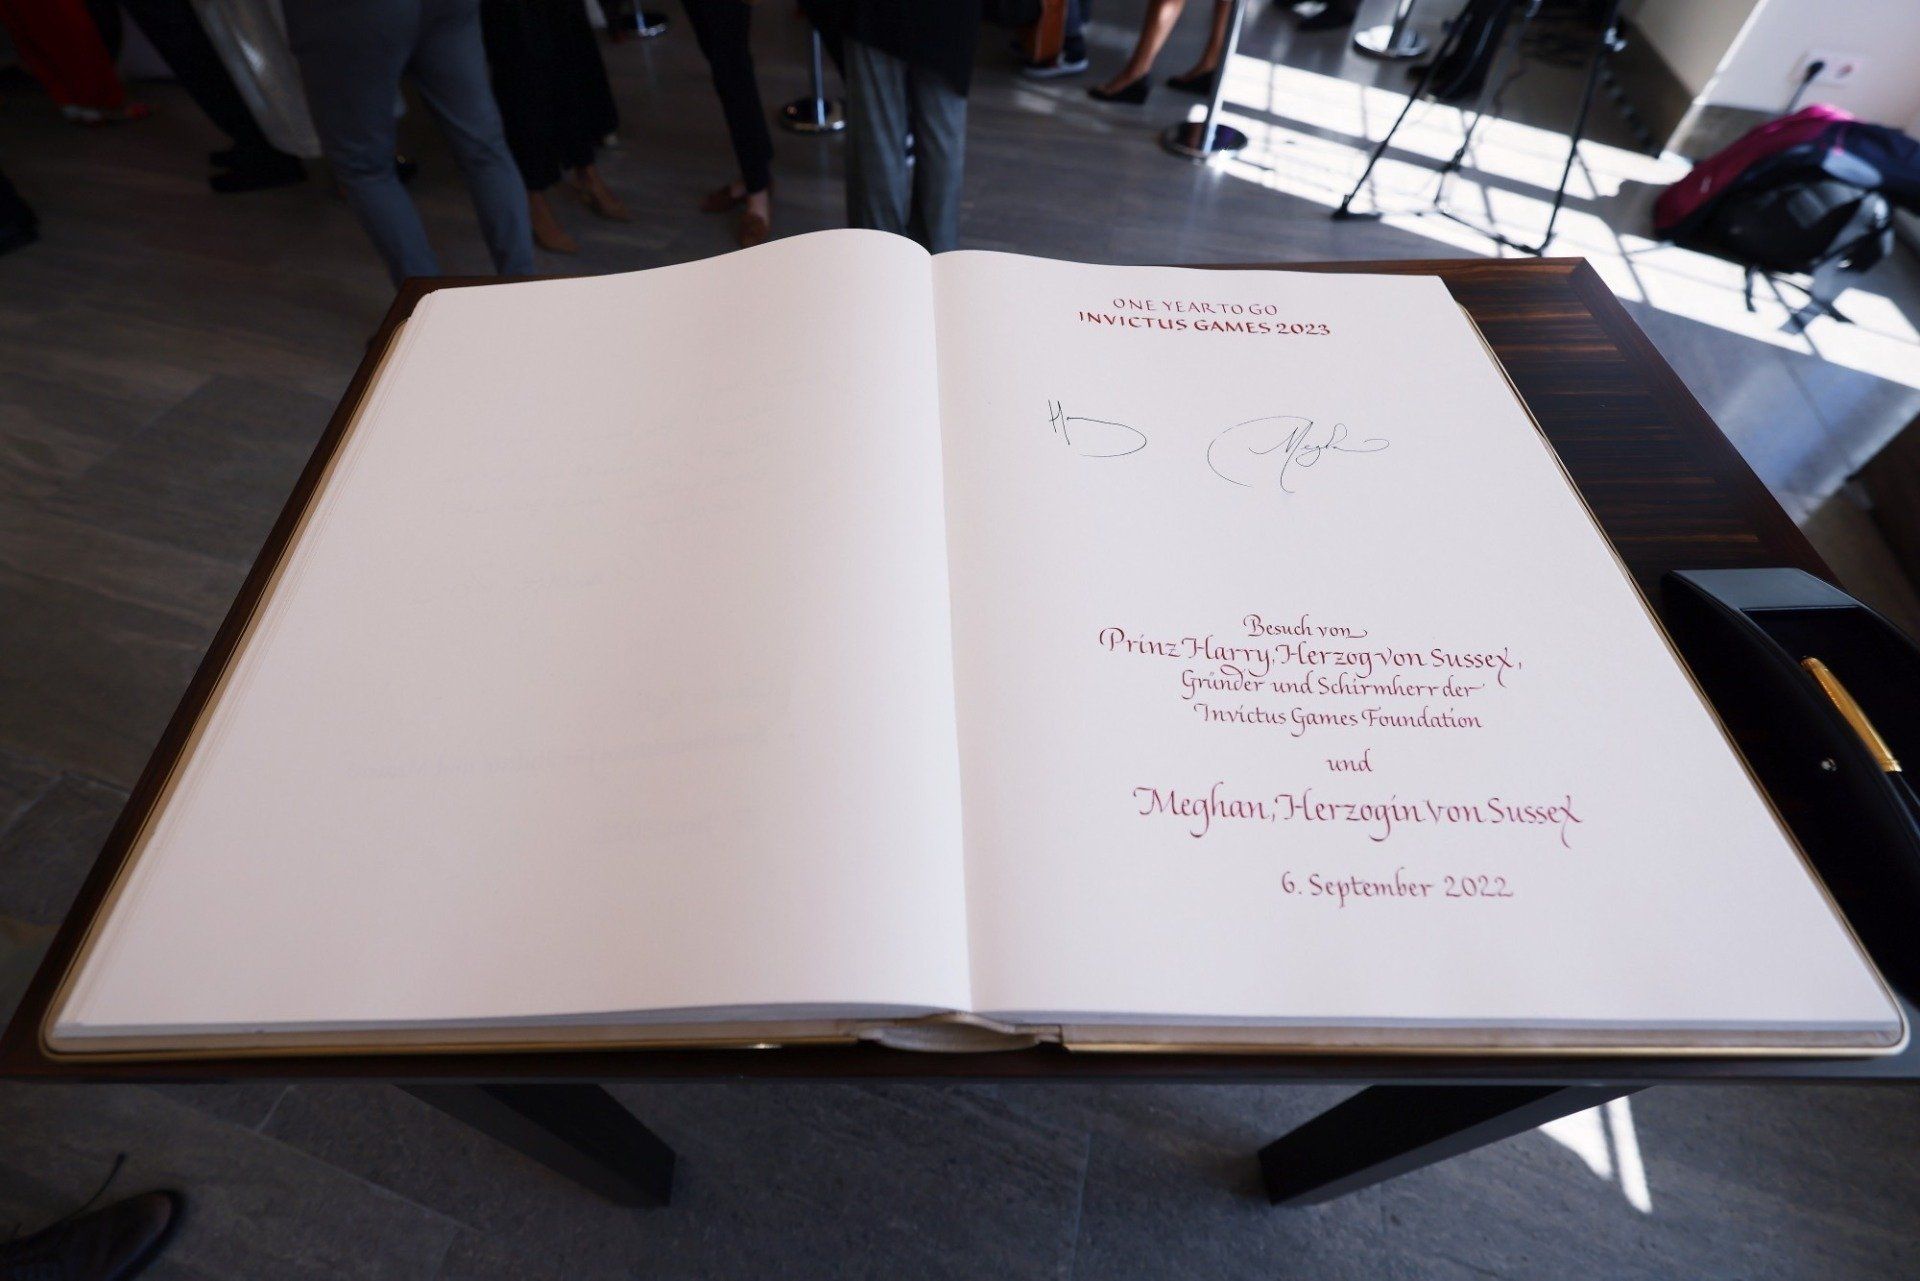 ONE YEAR TO GO
INVICTUS GAMES 2023
Meghan
Besuch von
Prinz Harry, Herzog von Sussex,
Gründer und Schirmherr der
Invictus Games Foundation
und
Meghan, Herzogin von Sussex
6. September 2022